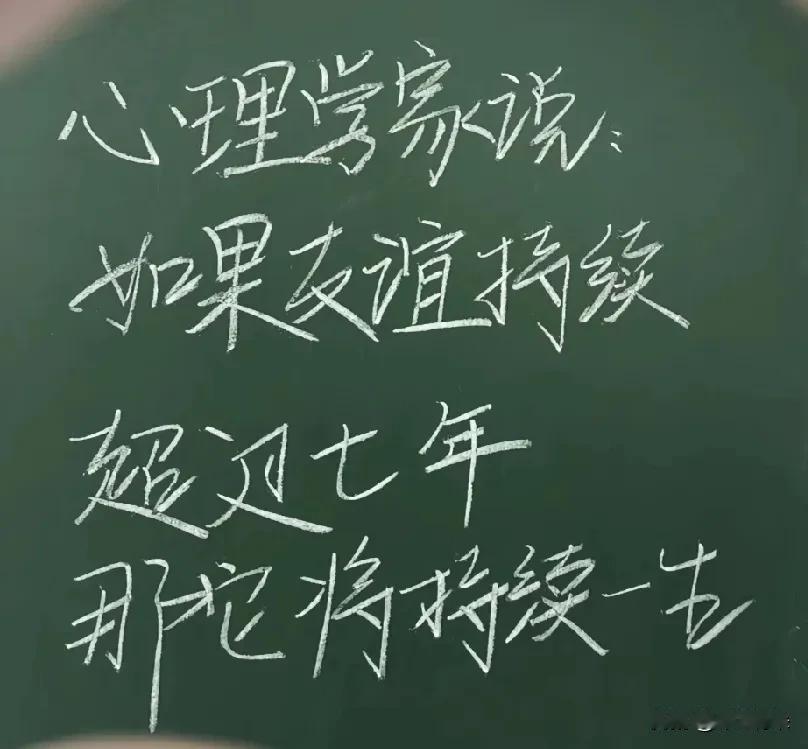 心理学家说:
如果友谊持续
超过七年
那它将持续一生